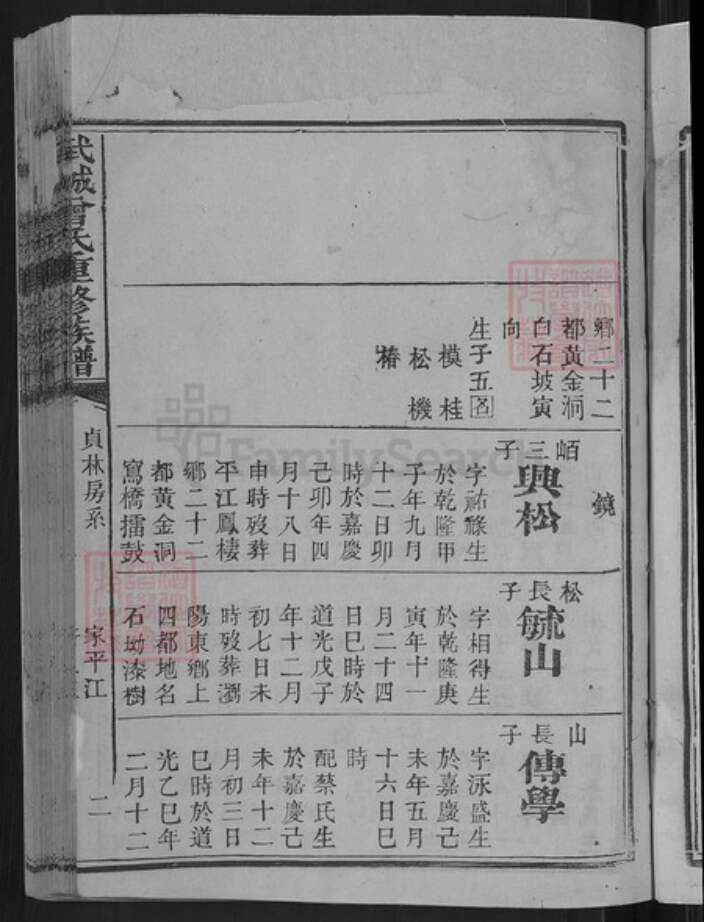 鄉二十二
都黃金洞
白石坡寅
向
生子五名
模桂
松機
椿
鏡
峀三子
興松
字祐祿生
於乾隆甲
子年九月
十二日卯
時於嘉慶
己卯年四
月十八日
申時歿葬
平江鳳棲
鄉二十二
都黃金洞
窩橋擂鼓
松長子
毓山
字相得生
於乾隆庚
寅年十一
月二十四
日巳時於
道光戊子
年十二月
初七日未
時歿葬瀏
陽東鄉上
四都地名
石坳漆樹
山長子
傳學
字泳盛生
於嘉慶己
未年五月
十六日巳
時
配蔡氏生
於嘉慶己
未年十二
月初三日
巳時於道
光乙巳年
二月十二
武城曾氏重修族譜
貞林房系
家平江
二
FamilySearch